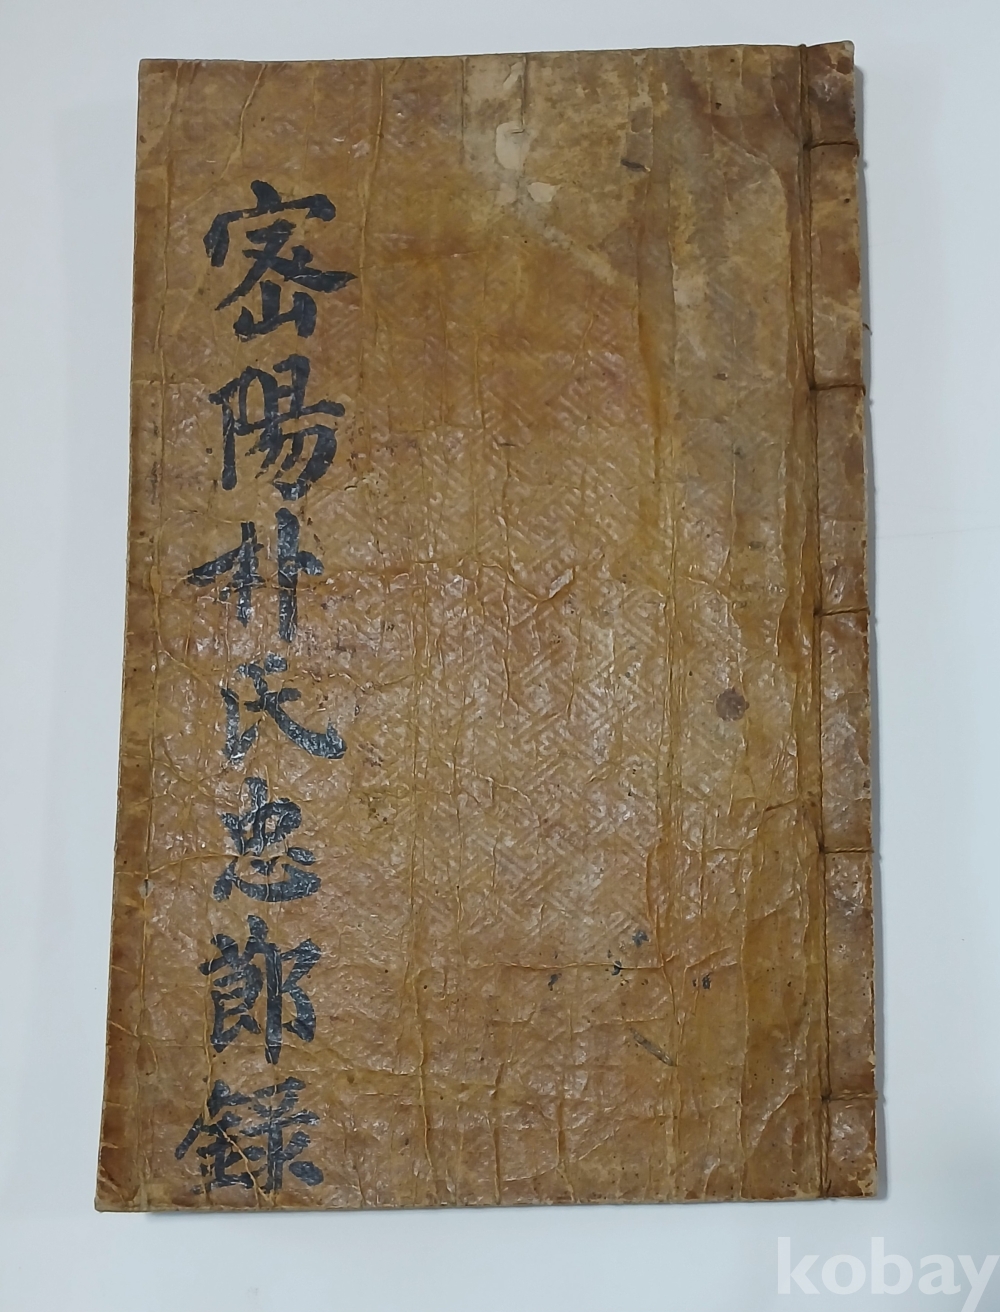 密陽朴氏忠節錄
kobay